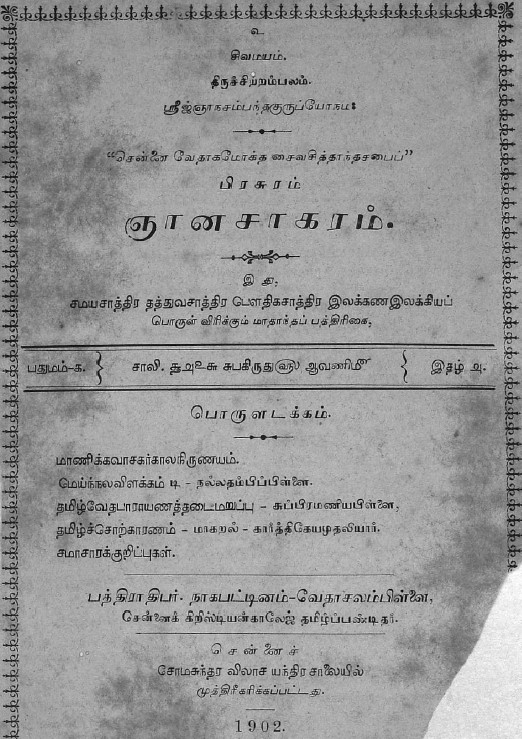 உ
சிவமயம்.
திருச்சிற்றம்பலம்.
ஸ்ரீஜ்ஞாநசம்பந்தகுருப்யோநம:
"சென்னை வேதாகமோக்த சைவசித்தாந்தசபைப்"
பிரசுரம்
ஞானசாகரம்.
இது,
சமயசாத்திர தத்துவசாத்திர பௌதிகசாத்திர இலக்கணஇலக்கியப்
பொருள் விரிக்கும் மாதாந்தப் பத்திரிகை,
பதுமம்-க. } சாலி. துஅஉசு சுபகிருது௵ ஆவணி௴ { இதழ் அ.
பொருளடக்கம்.
மாணிக்கவாசகர்காலநிருணயம்.
மெய்ந்நலவிளக்கம் டி - நல்லதம்பிப்பிள்ளை.
தமிழ்வேதபாராயணத்தடைமறுப்பு - சுப்பிரமணியபிள்ளை,
தமிழ்ச்சொற்காரணம் - மாகறல் - கார்த்திகேயமுதலியார்.
சமாசாரக்குறிப்புகள்.
பத்திராதிபர். நாகபட்டினம்-வேதாசலம்பிள்ளை,
சென்னைக் கிறிஸ்டியன்காலேஜ் தமிழ்ப்பண்டிதர்.
சென்னைச்
சோமசுந்தர விலாச யந்திர சாலையில்
முத்திரீகரிக்கப்பட்டது.
1902.